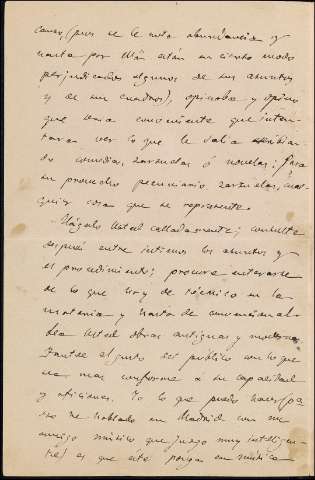 (pues se le nota abundancia y
hasta por allá están en cierto modo
perjudicados algunos de sus asuntos
y de sus cuadros), opinaba y opino
que sería conveniente que inten-
tara ver lo que le salía escribien-
do comedias, zarzuelas ó novelas: Para
su provecho pecuniario zarzuelas, cual-
quier cosa que se represente.
Hágalo Usted calladamente; consulte
después entre íntimos los asuntos y
el procedimiento; procure enterarse
de lo que hay de técnico en la
materia y hasta de convencional.
Lea Usted obras antiguas y modernas
el gusto del público con lo que
sea mas conforme a su capacidad
y aficiones. Yo lo que puedo hacer (pa-
ra eso he hablado en Madrid con un
amigo músico que juzgo muy inteligen-
te) es que éste ponga en música